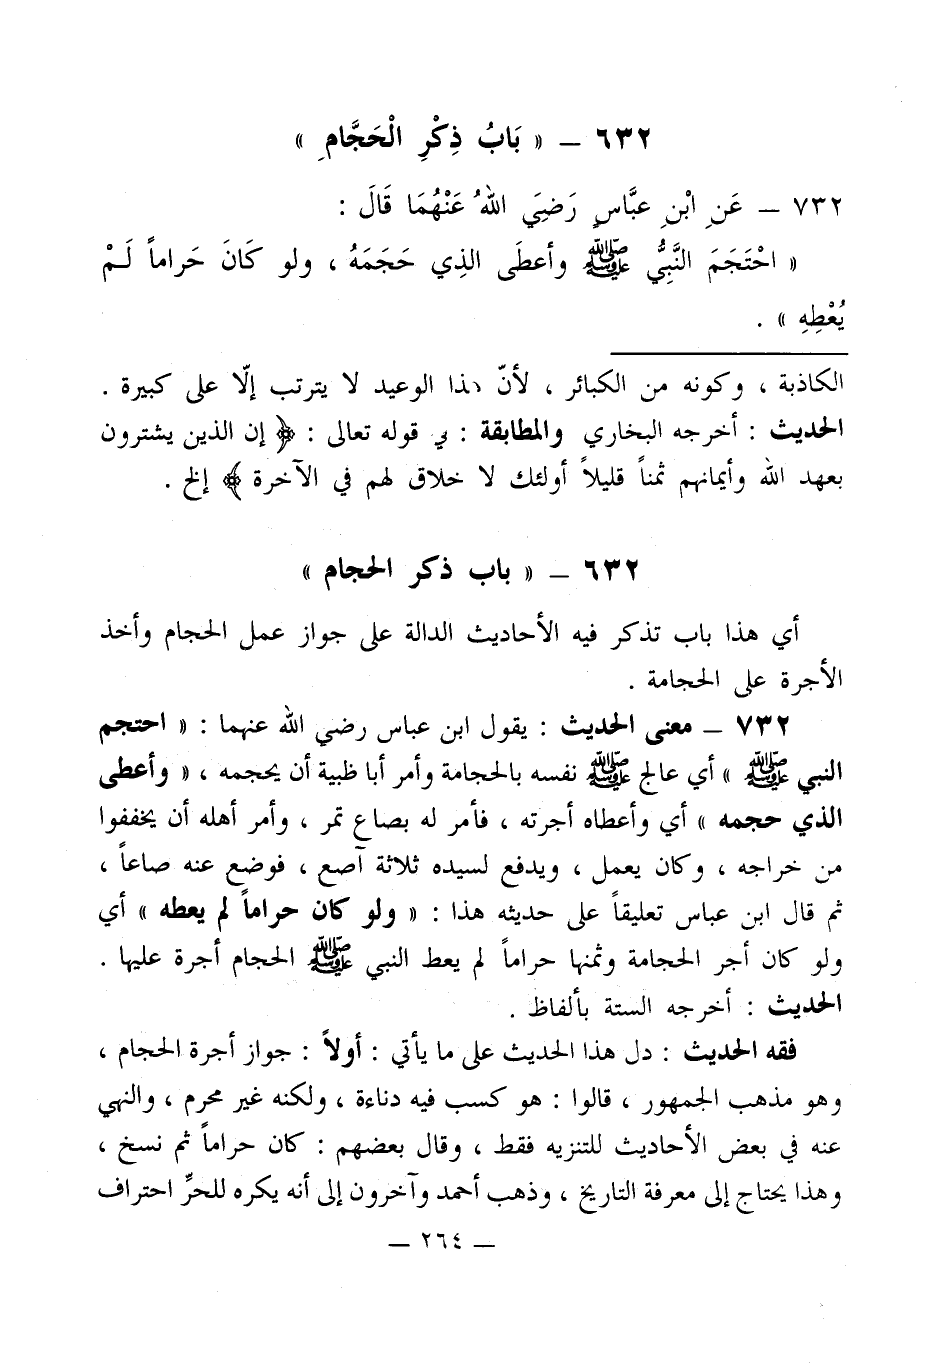 ٦٣٢ – « بَابُ ذِكْرِ الْحَجَّامِ »
٧٣٢ – عَنِ ابْنِ عبَّاسٍ رَضِيَ اللهُ عَنْهُمَا قَالَ :
« احْتَجَمَ النَّبِيُّ ﷺ وأعطَى الذِي حَجَمَهُ ، ولو كَانَ حَراماً لَمْ
يُعْطِهِ » .
الكاذبة ، وكونه من الكبائر ، لأنّ هذا الوعيد لا يترتب إلّا على كبيرة .
الحديث : أخرجه البخاري والمطابقة : في قوله تعالى : ﴿ إن الذين يشترون
بعهد الله وأيمانهم ثمناً قليلاً أولئك لا خلاق لهم في الآخرة ﴾ إلخ .
٦٣٢ – « باب ذكر الحجام »
أي هذا باب تذكر فيه الأحاديث الدالة على جواز عمل الحجام وأخذ
الأجرة على الحجامة .
٧٣٢ – معنى الحديث : يقول ابن عباس رضي الله عنهما : « احتجم
النبي ﷺ » أي عالج ﷺ نفسه بالحجامة وأمر أبا ظبية أن يحجمه ، « وأعطى
الذي حجمه » أي وأعطاه أجرته ، فأمر له بصاع تمر ، وأمر أهله أن يخففوا
من خراجه ، وكان يعمل ، ويدفع لسيده ثلاثة آصع ، فوضع عنه صاعاً ،
ثم قال ابن عباس تعليقاً على حديثه هذا : « ولو كان حراماً لم يعطه » أي
ولو كان أجر الحجامة وثمنها حراماً لم يعط النبي ﷺ الحجام أجرة عليها .
الحديث : أخرجه الستة بألفاظ .
فقه الحديث : دل هذا الحديث على ما يأتي : أولاً : جواز أجرة الحجام ،
وهو مذهب الجمهور ، قالوا : هو كسب فيه دناءة ، ولكنه غير محرم ، والنهي
عنه في بعض الأحاديث للتنزيه فقط ، وقال بعضهم : كان حراماً ثم نسخ ،
وهذا يحتاج إلى معرفة التاريخ ، وذهب أحمد وآخرون إلى أنه يكره للحرِّ احتراف
– ٢٦٤ –